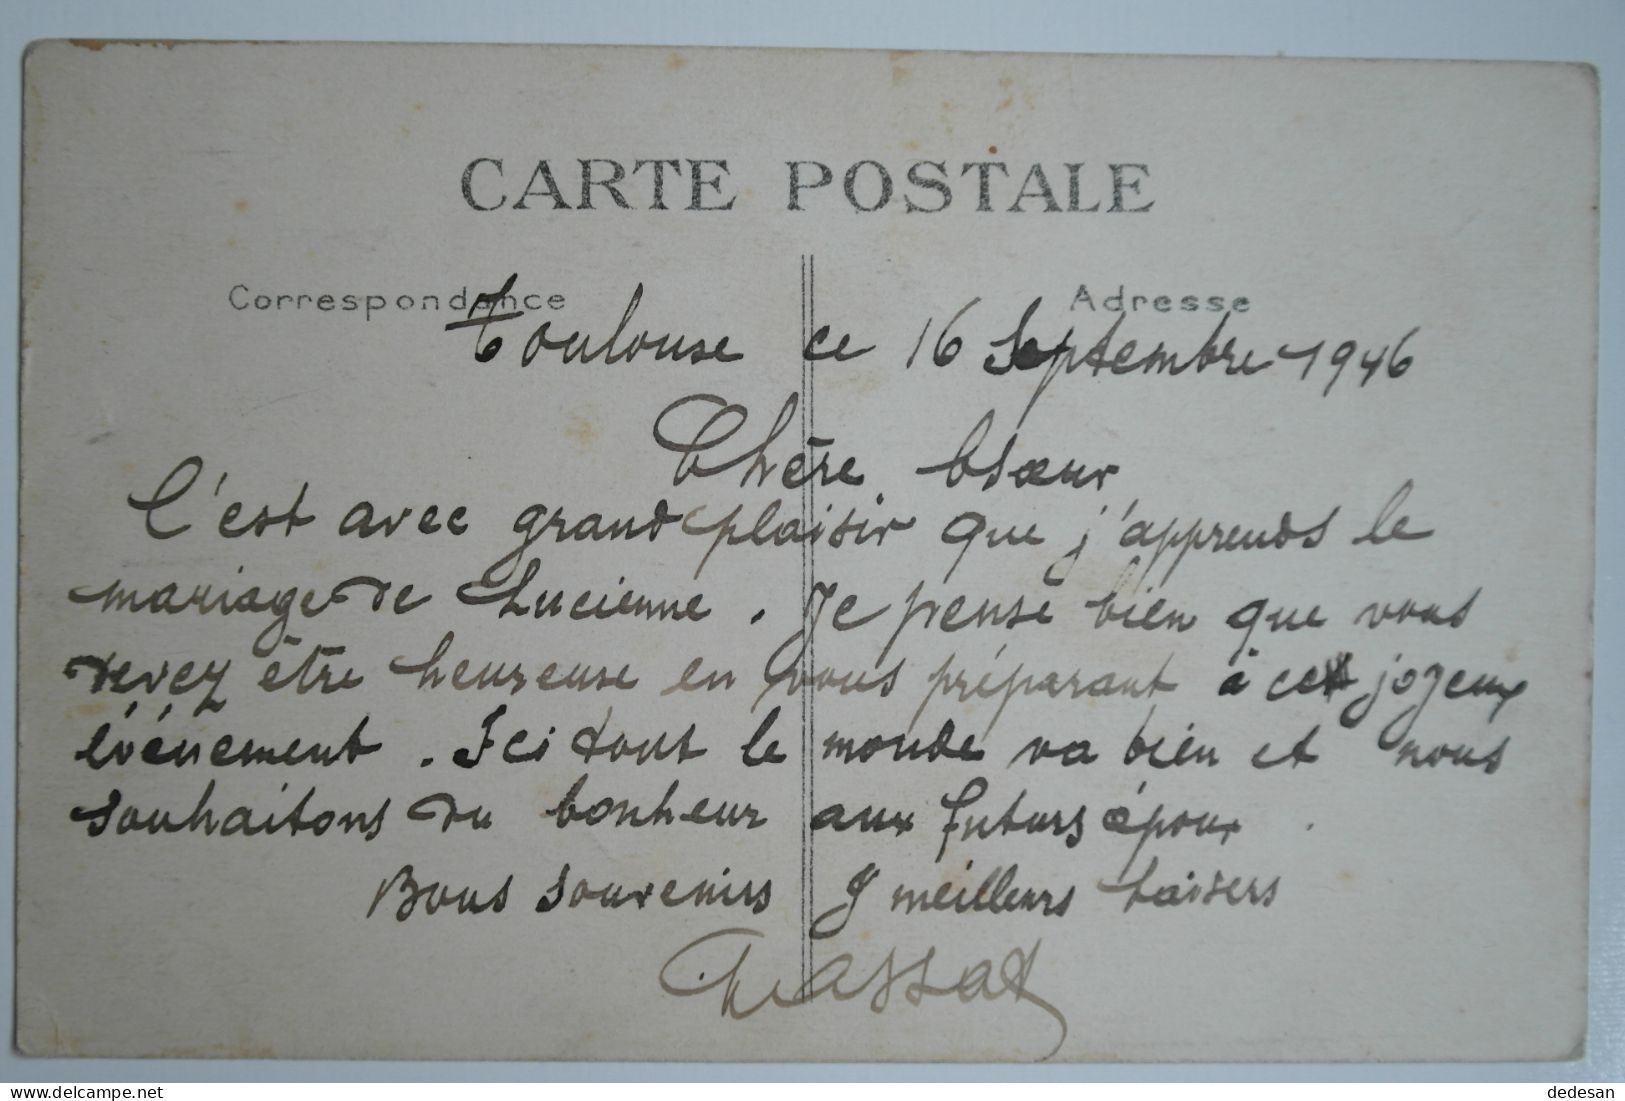 CARTE POSTALE
Correspondance
Adresse
Toulouse ce 16 Septembre 1946
Chère bsœur
C'est avec grand plaisir que j'apprends le
mariage de Lucienne. Je pense bien que vous
devez être heureuse en vous préparant à cet joyeux
événement. Ici tout le monde va bien et nous
souhaitons du bonheur aux futurs époux.
Bons souvenirs & meilleurs baisers
Massat
delcampe.net
dedesan